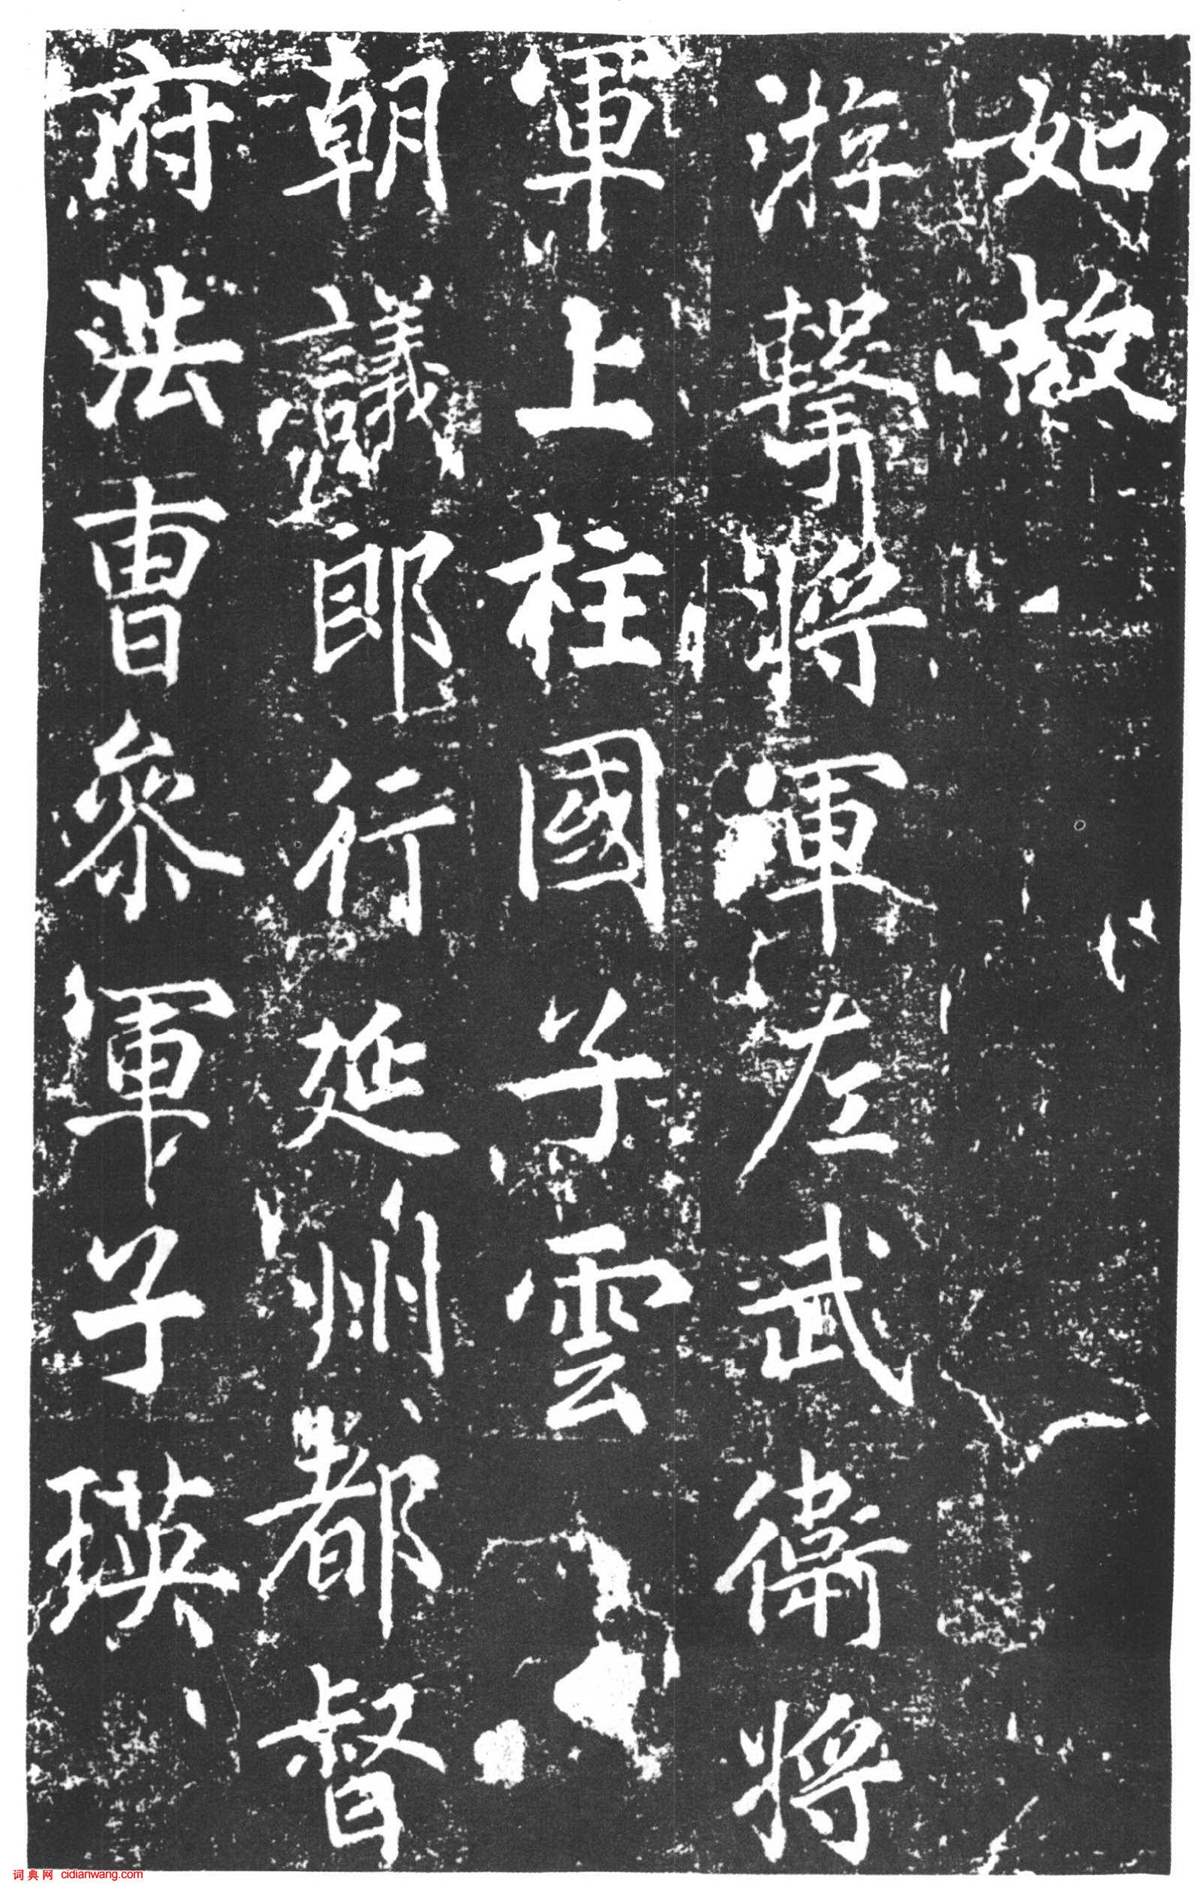 如故
游擊將軍左武衛將
軍上柱國子雲
朝議郎行延州都督
府法曹參軍子瑛
词典网 cidianwang.com